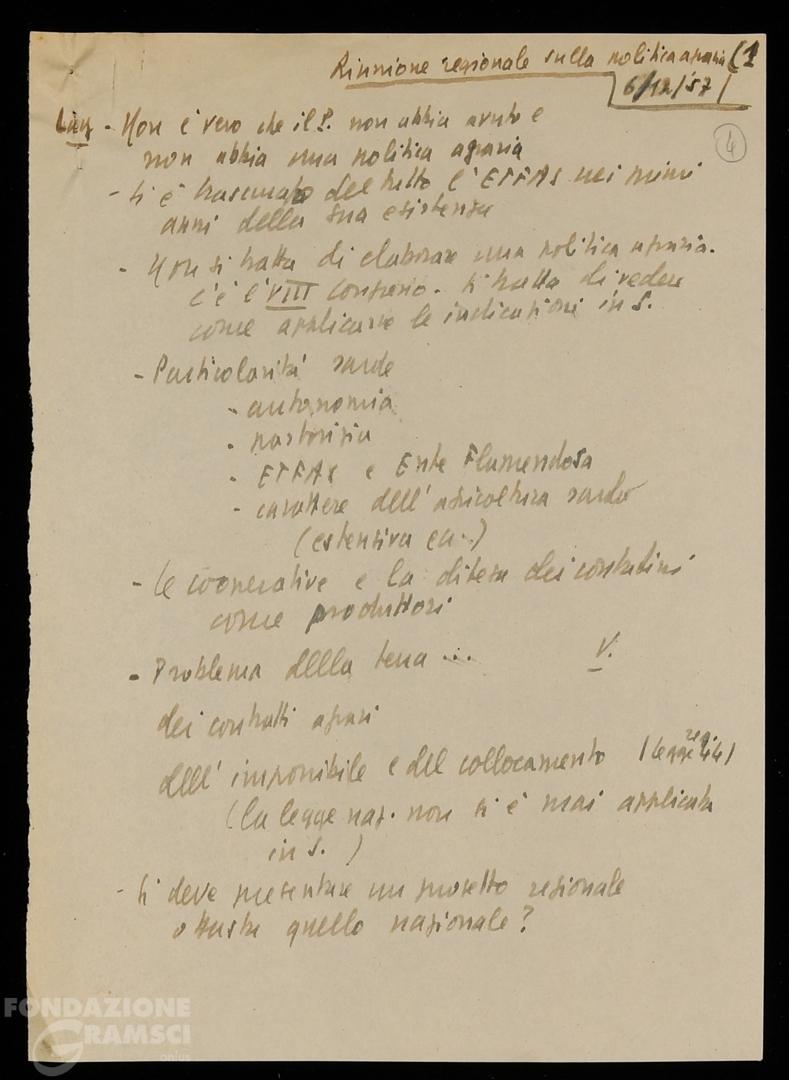 Riunione regionale sulla politica agraria (1
6/12/57
4
- Non è vero che il P. non abbia avuto e
non abbia una politica agraria
- Si è trascurato del tutto l'ETFAS nei primi
anni della sua esistenza
- Non si tratta di elaborare una politica agraria.
C'è l'VIII Congresso. Si tratta di vedere
come applicarne le indicazioni in S.
- Particolarità sarde
- autonomia
- pastorizia
- ETFAS e Ente Flumendosa
- carattere dell'agricoltura sarda
(estensiva ecc.)
- Le cooperative e la difesa dei contadini
come produttori
- Problema della terra ... V.
dei contratti agrari
dell'imponibile e del collocamento (legge reg. 44)
(la legge naz. non si è mai applicata
in S.)
- Si deve presentare un progetto regionale
o basta quello nazionale?
FONDAZIONE
GRAMSCI
onlus